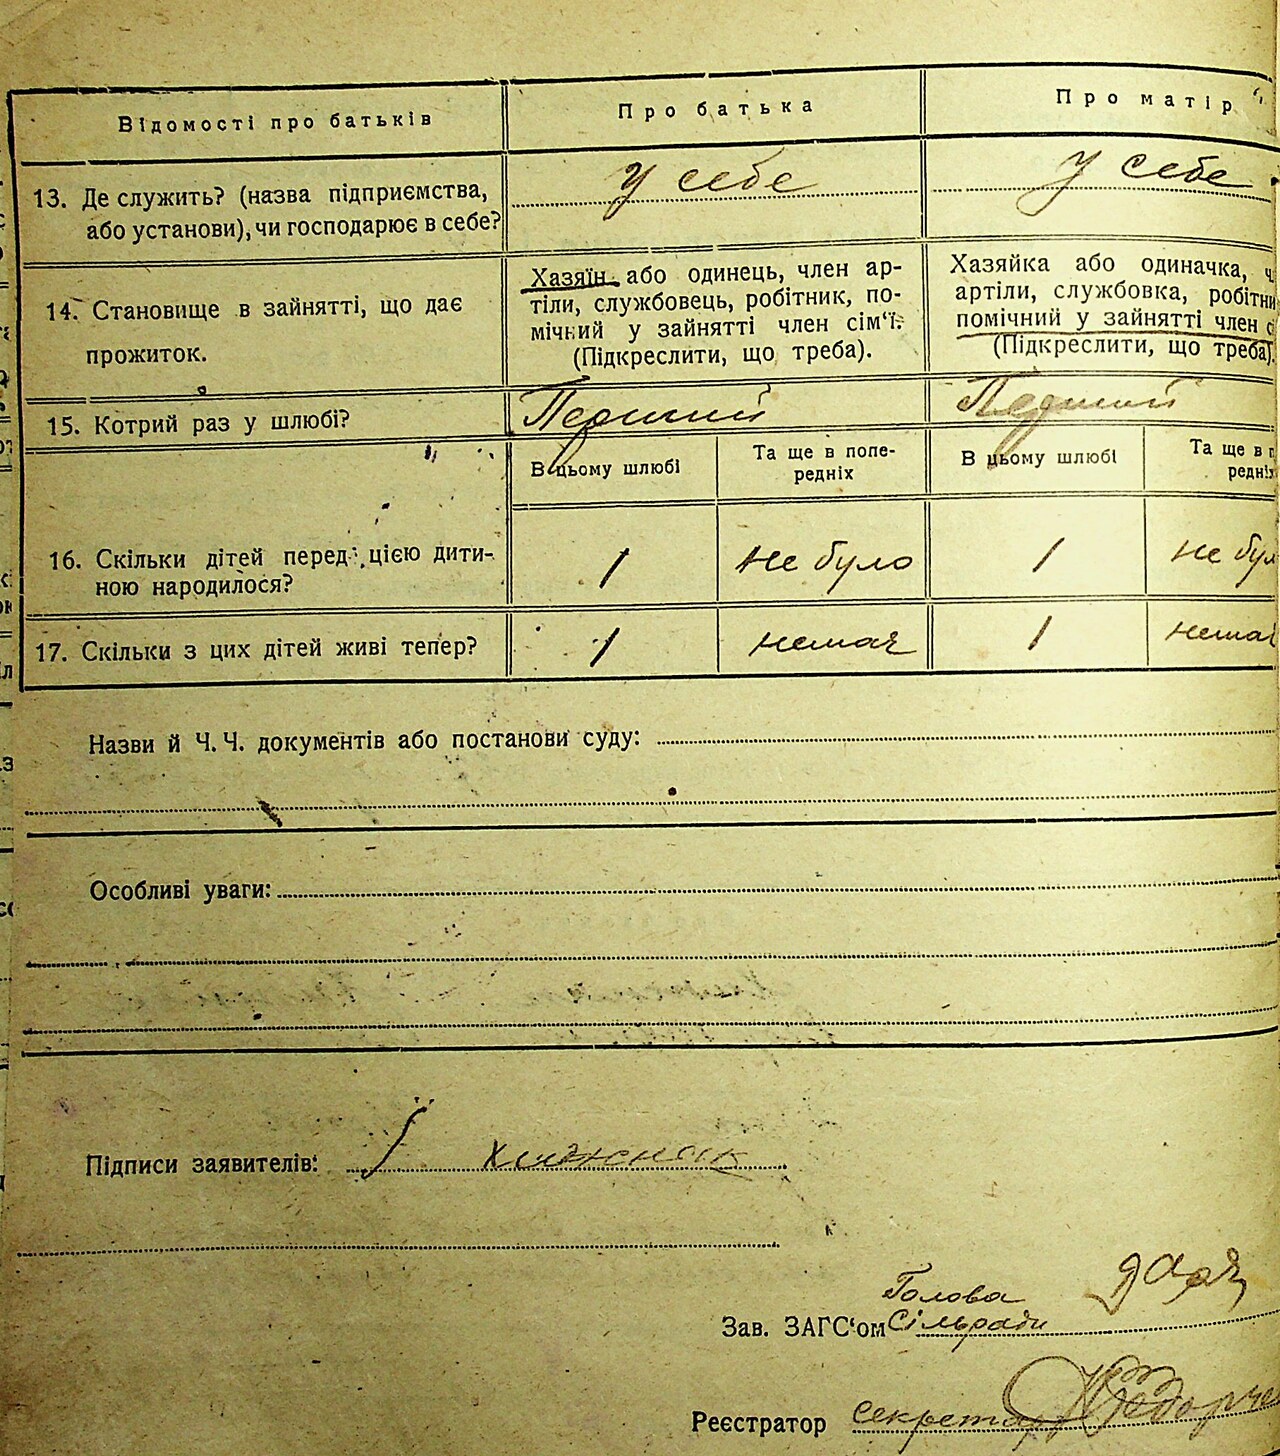 Відомості про батьків
Про батька
Про матір
13. Де служить? (назва підприємства,
або установи), чи господарює в себе?
у себе
у себе
14. Становище в зайнятті, що дає
прожиток.
Хазяїн або одинець, член ар-
тіли, службовець, робітник, по-
мічний у зайнятті член сім'ї.
(Підкреслити, що треба).
Хазяйка або одиначка, ч
артіли, службовка, робітни
помічний у зайнятті член с
(Підкреслити, що треба).
15. Котрий раз у шлюбі?
Перший
Перший
В цьому шлюбі
Та ще в попе-
редніх
В цьому шлюбі
Та ще в п
редніх
16. Скільки дітей перед цією дити-
ною народилося?
1
не було
1
не бул
17. Скільки з цих дітей живі тепер?
1
немає
1
немає
Назви й Ч. Ч. документів або постанови суду:
Особливі уваги:
Підписи заявителів:
Зав. ЗАГС'ом
Голова
Сільради
Реєстратор секретар